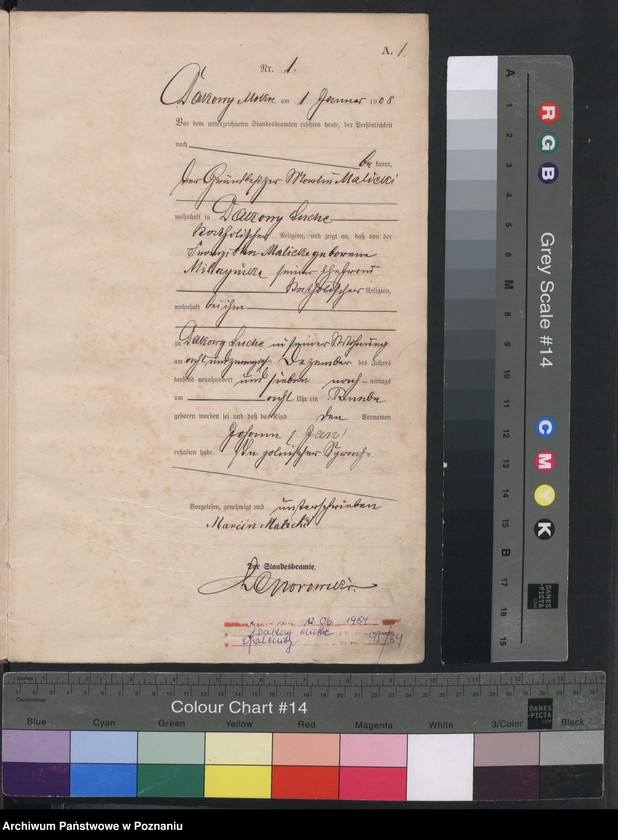 A. 1.
Nr. 1.
Dakowy Mokre am 1 Januar 1908
Vor dem unterzeichneten Standesbeamten erschien heute, der Persönlichkeit
nach be kannt,
der Grundbesitzer Martin Malicki
wohnhaft in Dakowy suche
katholischer Religion, und zeigt an, daß von der
Franziska Malicki geborene
seiner Ehefrau
katholischer Religion,
wohnhaft bei ihm
zu Dakowy suche in seiner Wohnung
am acht und zwanzigsten Dezember des Jahres
tausend neunhundert und sieben nach mittags
um acht Uhr ein Knabe
geboren worden sei und daß das Kind den Vornamen
Johann (Jan)
erhalten habe. in polnischer Sprache
Vorgelesen, genehmigt und unterschrieben
Marcin Malicki
Der Standesbeamte.
12.06. 1984
Dakowy suche
Opalenica
Grey Scale #14
A 1 2 3 4 5 6 M 8 9 10 11 12 13 14 15 B 17 18 19
R G B
C M Y K
DANES
-PICTA
.COM
Inches
Centimetres
Colour Chart #14
DANES
-PICTA
.COM
Blue Cyan Green Yellow Red Magenta White 3/Color Black
Archiwum Państwowe w Poznaniu